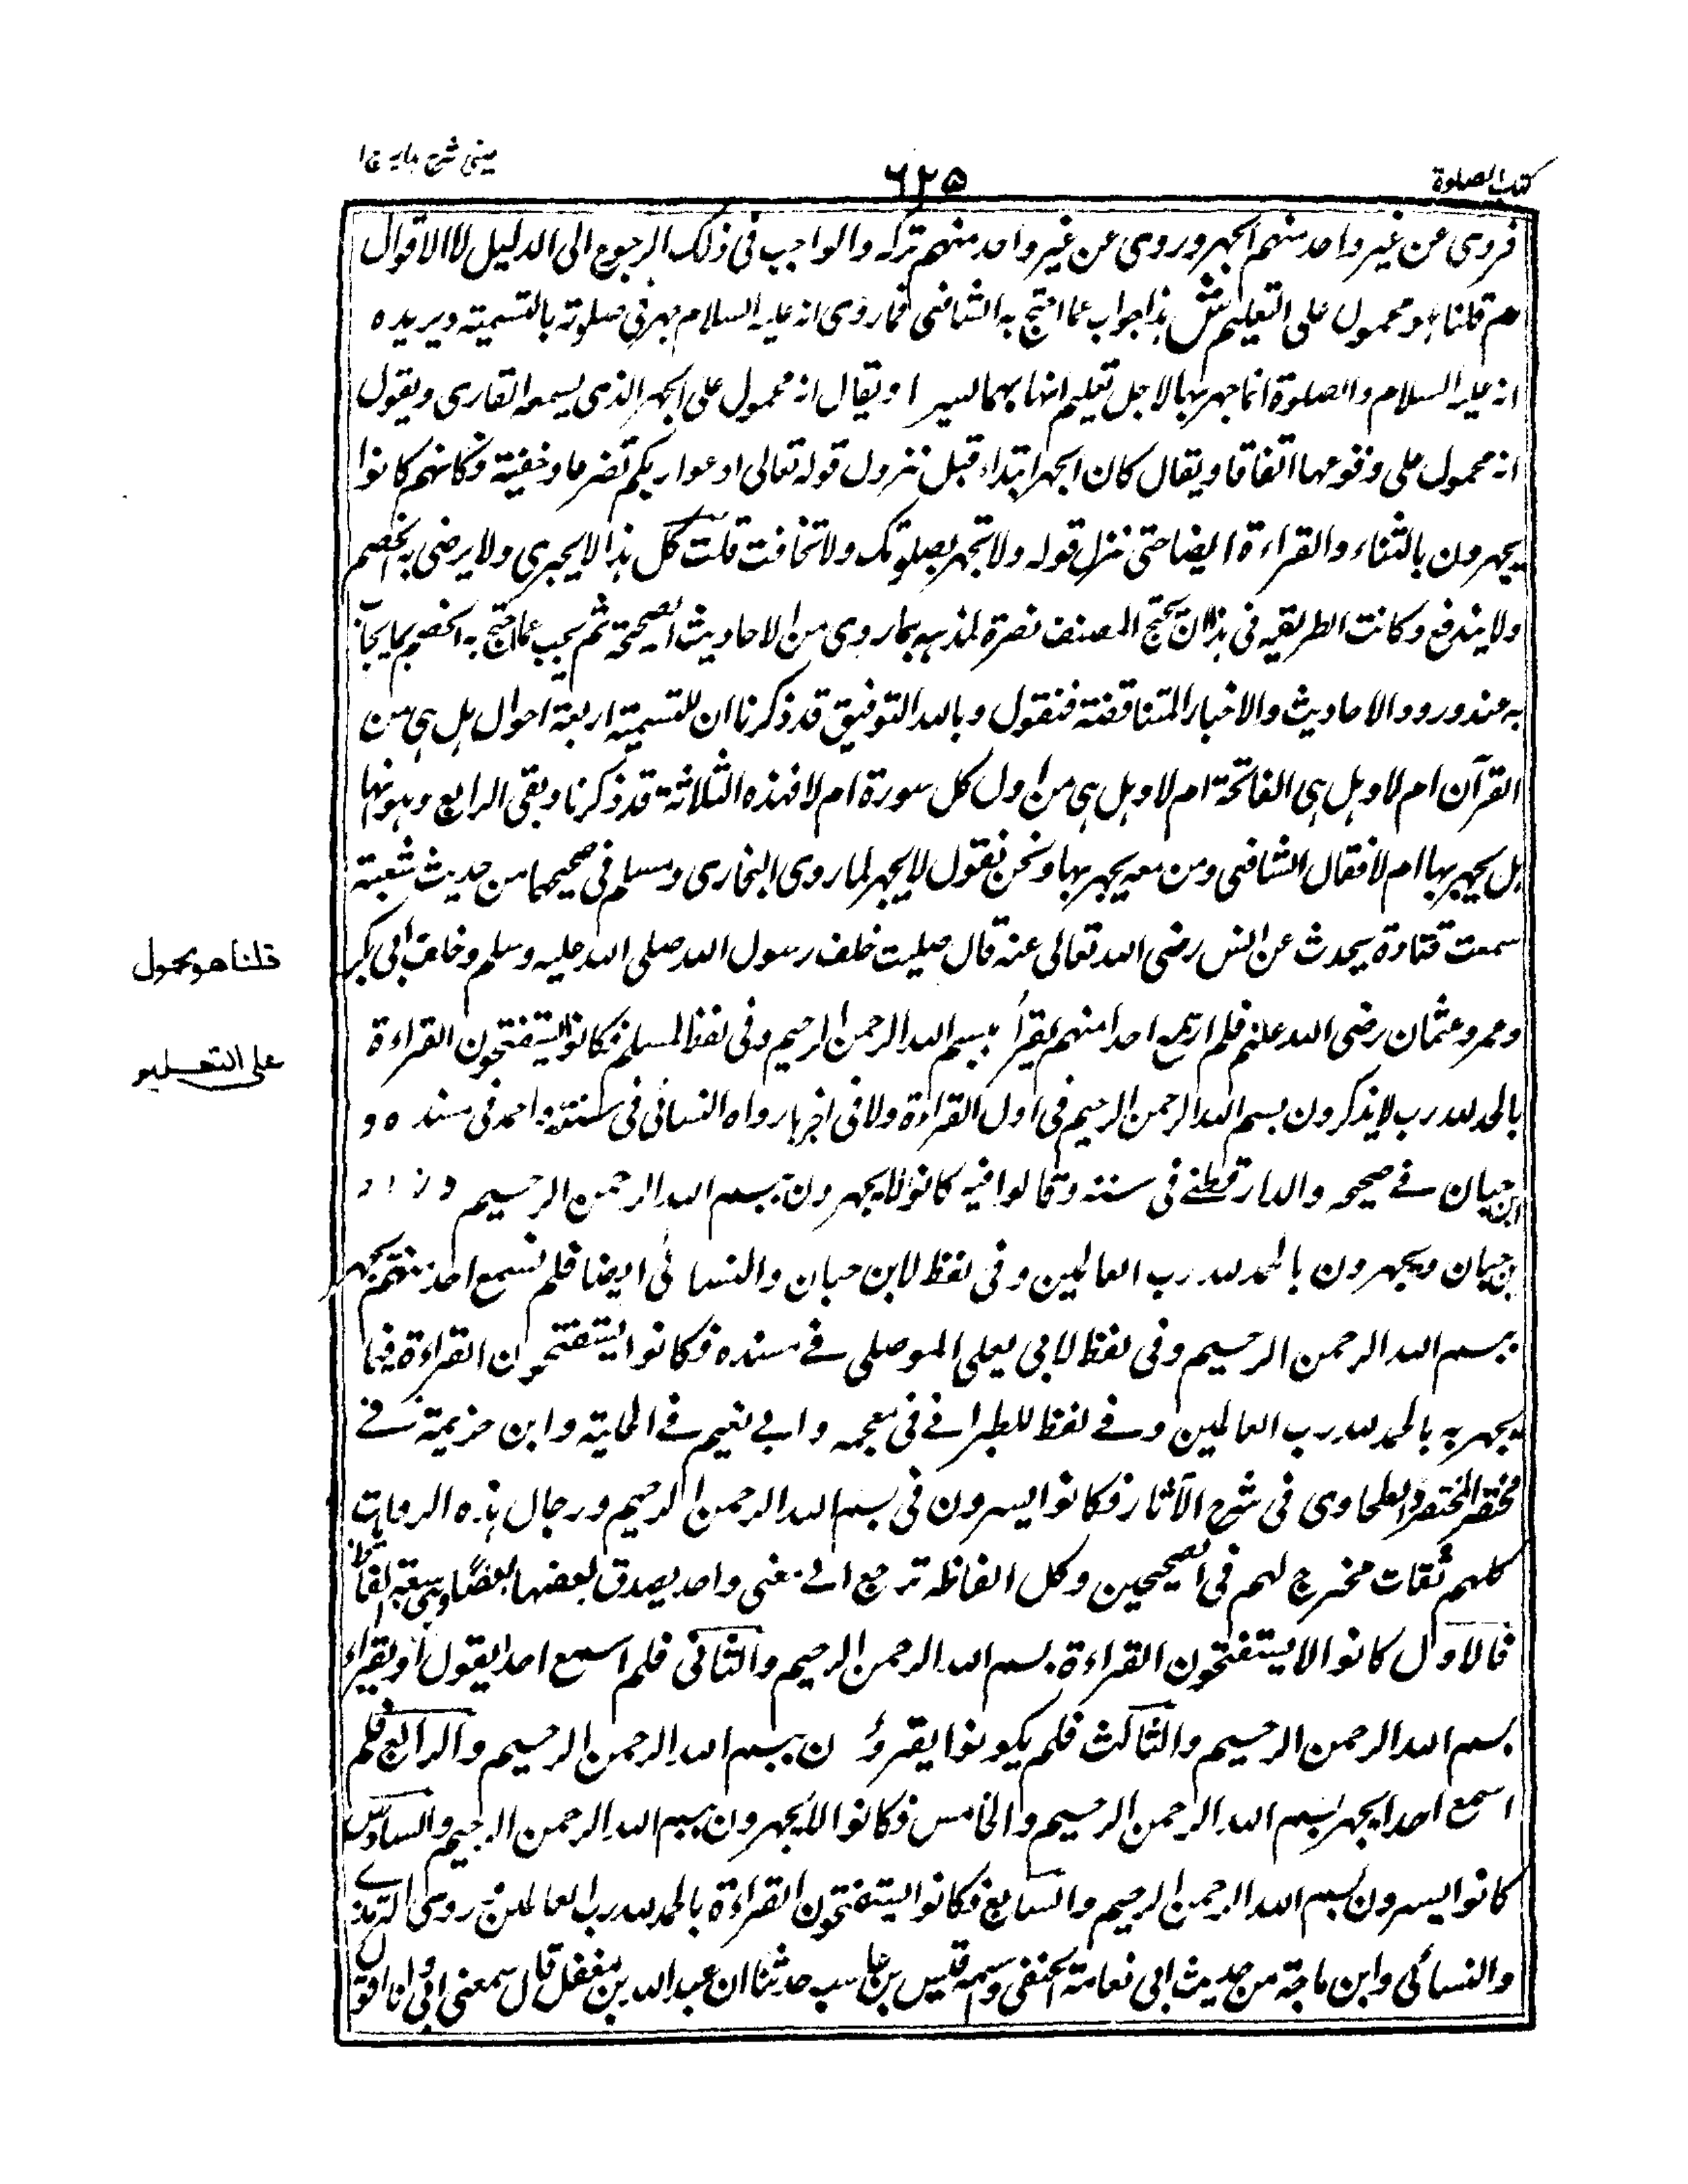 كتاب الصلوة
٦٢٥
عينى شرح هدايه ج ١
فروى عن غير واحد منهم الجهر وروى عن غير واحد منهم تركه والواجب فى ذلك الرجوع الى الدليل لا الاقوال
م قلنا هو محمول على التعليم ش هذا جواب عما احتج به الشافعى فما روى انه عليه السلام جهر فى صلوته بالتسمية ويريده
انه عليه السلام والصلوة انما جهر بها لاجل تعليم انها بهما ا ويقال انه محمول على الجهر الذى يسمعه القارى ويقول
انه محمول على وقوعها اتفاقا ويقال كان الجهر ابتداء قبل نزول قوله تعالى ادعوا ربكم تضرعا وخفية فكانهم كانوا
يجهرون بالثناء والقراءة ايضا حتى نزل قوله ولا تجهر بصلوتك ولا تخافت قلت كل هذا لا يجرى ولا يرضى به الخصم
ولا يندفع وكانت الطريقه فى هذا ان يحتج المصنف نصرة لمذهبه بما روى من الاحاديث الصحيحة ثم يجيب عما احتج به الخصم بما يجاب
به عند ورود الاحاديث والاخبار المتناقضة فنقول وبالله التوفيق قد ذكرنا ان للتسمية اربعة احوال هل هى من
القرآن ام لا وهل هى الفاتحة ام لا وهل هى من اول كل سورة ام لا فهذه الثلاثة قد ذكرنا وبقى الرابع وهو انها
هل يجهر بها ام لا فقال الشافعى ومن معه يجهر بها ونحن نقول لا يجهر لما روى البخارى ومسلم فى صحيحهما من حديث شعبة
سمعت قتادة يحدث عن انس رضى الله تعالى عنه قال صليت خلف رسول الله صلى الله عليه وسلم وخلف ابى بكر
وعمر وعثمان رضى الله عنهم فلم اسمع احدا منهم يقرأ بسم الله الرحمن الرحيم وفى لفظ لمسلم فكانوا يستفتحون القراءة
بالحمد لله رب لا يذكرون بسم الله الرحمن الرحيم فى اول القراءة ولا فى اخرها رواه النسائى فى سننه واحمد فى مسنده و
ابن حبان فے صحيحه والدارقطنے فى سننه وقالوا فيه كانوا لا يجهرون ببسم الله الرحمن الرحيم وزاد
بن حبان ويجهرون بالحمد لله رب العالمين وفى لفظ لابن حبان والنسائى ايضا فلم نسمع احدا منهم يجهر
ببسم الله الرحمن الرحيم وفى لفظ لابى يعلى الموصلى فے مسنده فكانوا يستفتحون القراءة فيما
يجهر به بالحمد لله رب العالمين وفے لفظ للطبرانے فى معجمه وابے نعيم فے الحلية وابن خزيمة فے
مختصر المختصر والطحاوى فى شرح الآثار فكانوا يسرون فى بسم الله الرحمن الرحيم ورجال هذه الروايات
كلهم ثقات مخرج لهم فى الصحيحين وكل الفاظه ترجع الے معنى واحد يصدق بعضها بعضا وهى سبعة الفاظ
فالاول كانوا لا يستفتحون القراءة ببسم الله الرحمن الرحيم والثانى فلم اسمع احدا يقول او يقراء
بسم الله الرحمن الرحيم والثالث فلم يكونوا يقرؤن ببسم الله الرحمن الرحيم والرابع فلم
اسمع احدا يجهر بسم الله الرحمن الرحيم والخامس فكانوا لا يجهرون ببسم الله الرحمن الرحيم والسادس
كانوا يسرون بسم الله الرحمن الرحيم والسابع فكانوا يستفتحون القراءة بالحمد لله رب العالمين روى الترمذے
والنسائى وابن ماجة من حديث ابى نعامة الحنفى واسمه قيس بن حدثنا ان عبد الله بن مغفل قال سمعنى ابى وانا اقول
قلنا هو محمول
على التعليم